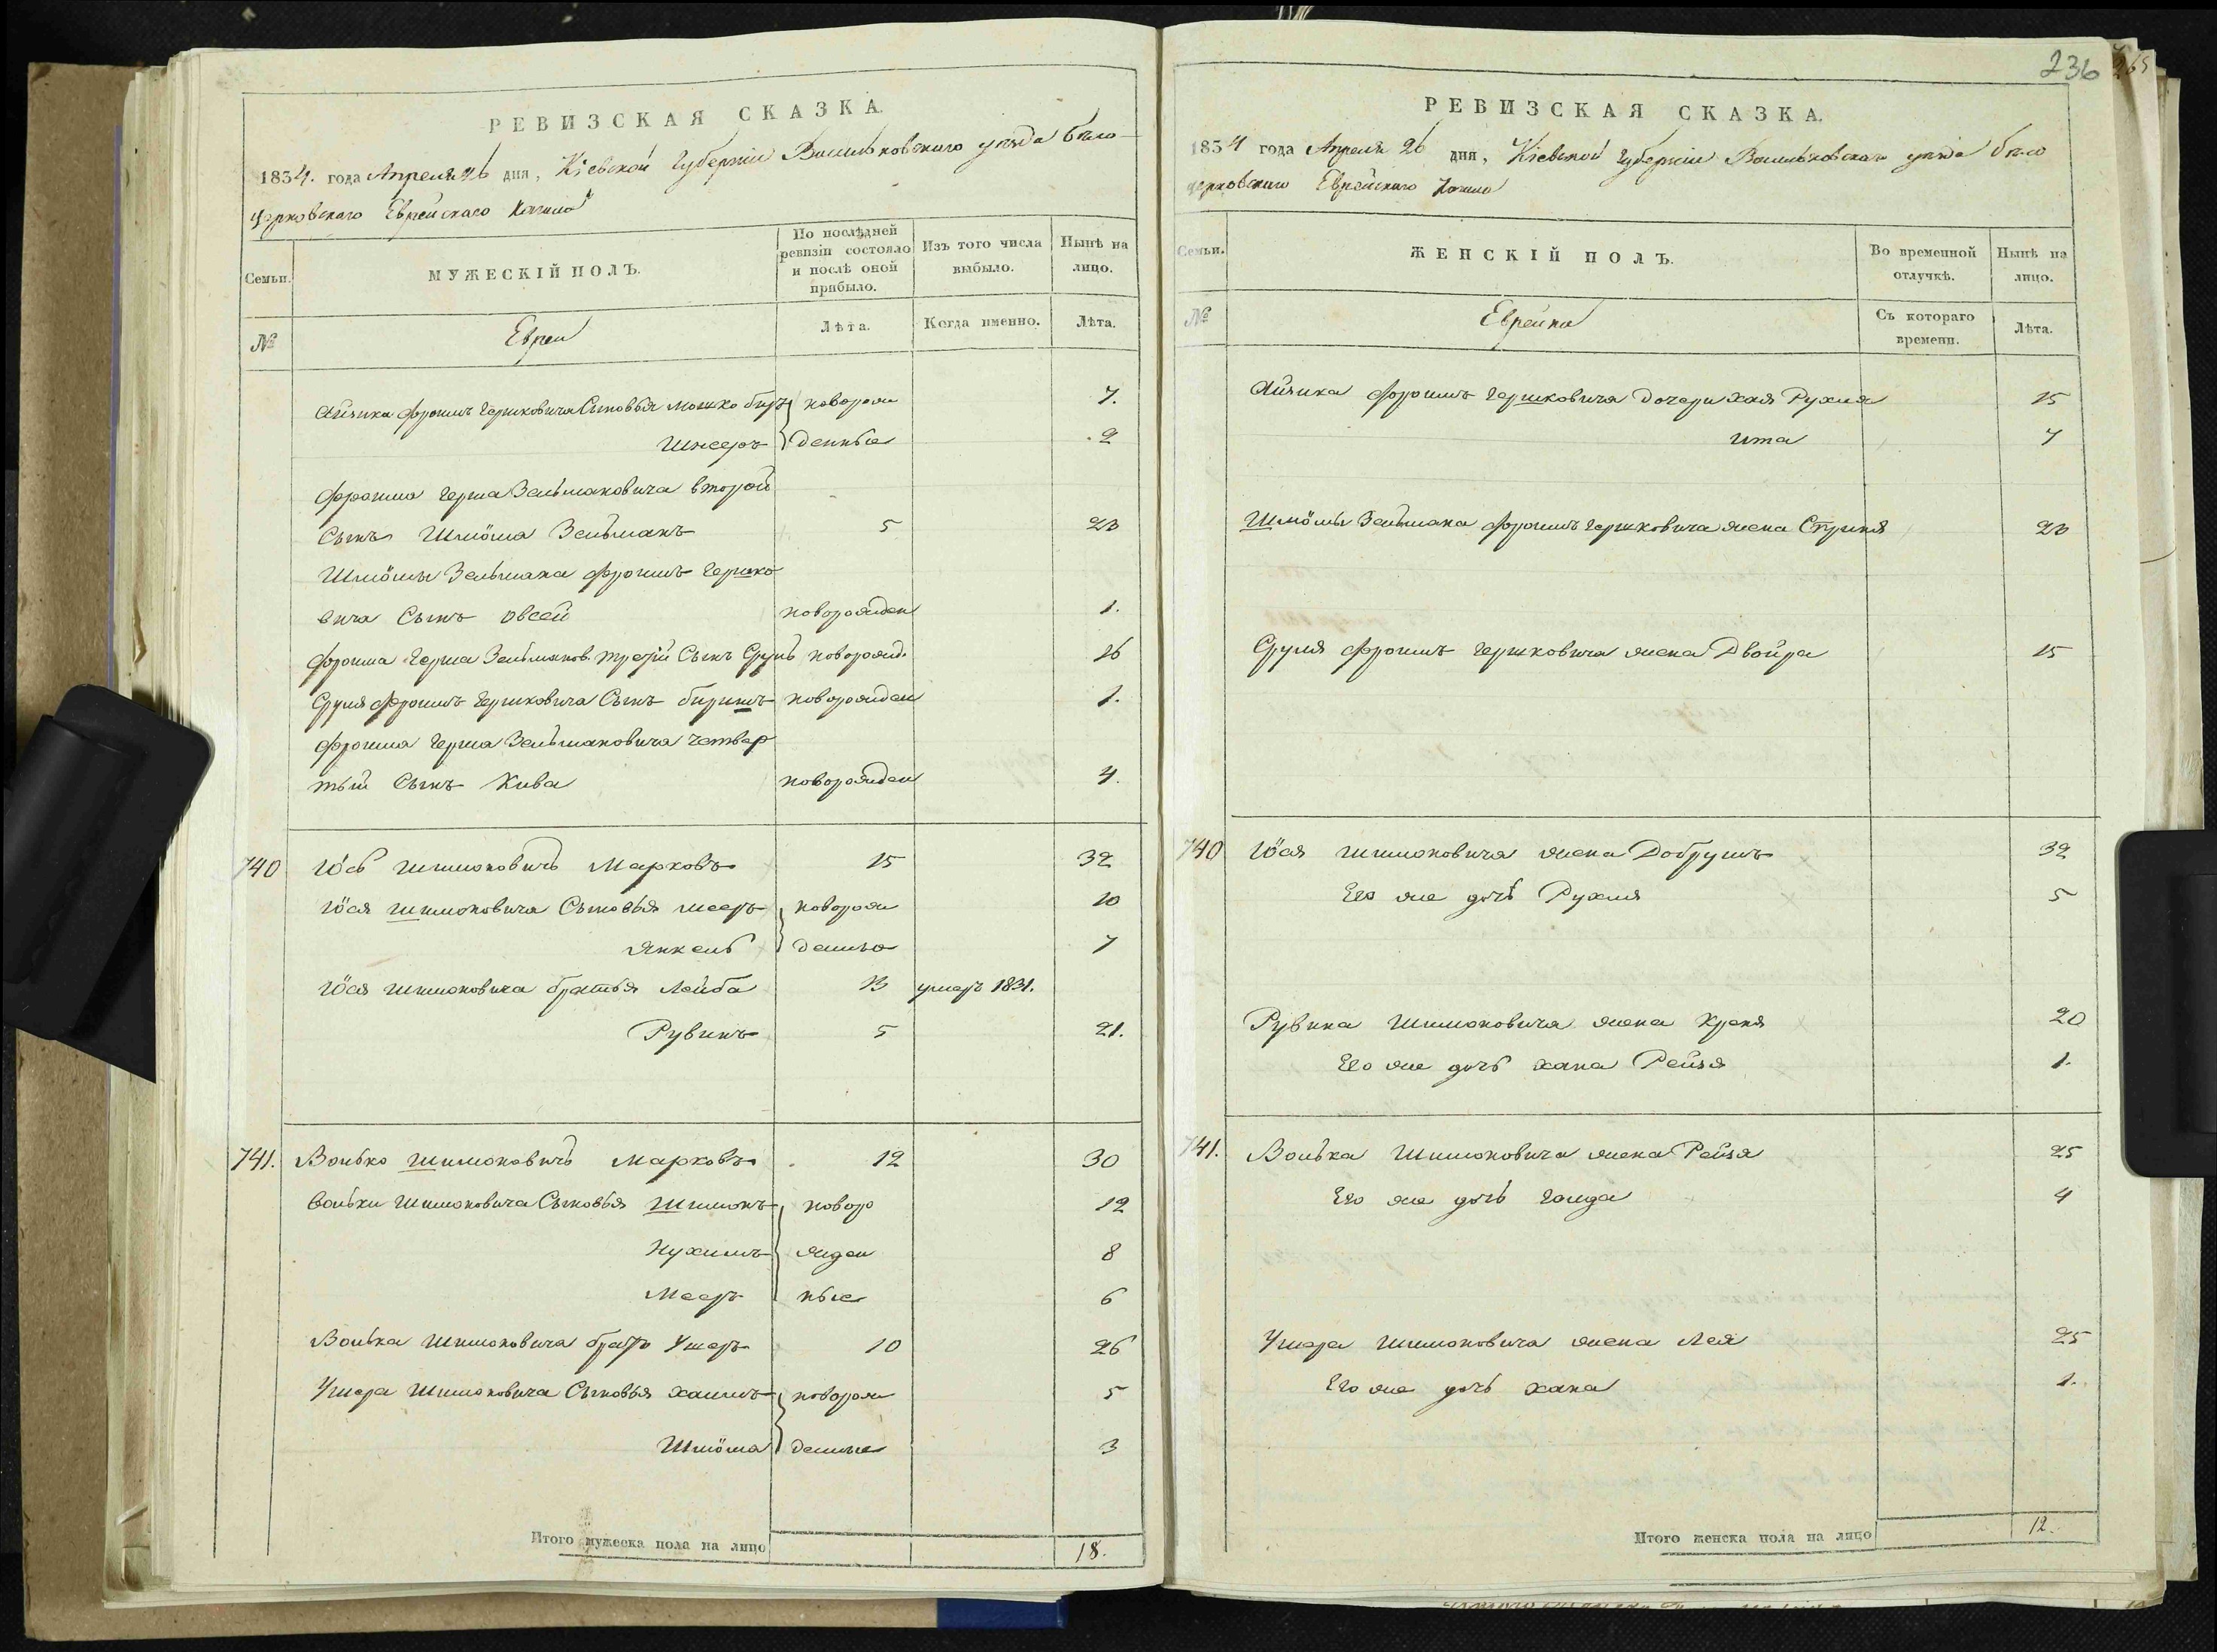 РЕВИЗСКАЯ СКАЗКА.
1834. года Апреля 26 дня, Кіевской Губерніи Васильковскаго уезда бѣло-
церковскаго Еврейскаго Кагала
Семьи.
МУЖЕСКІЙ ПОЛЪ.
По послѣдней ревизіи состояло и послѣ оной прибыло.
Изъ того числа выбыло.
Нынѣ на лицо.
№
Евреи
Лѣта.
Когда именно.
Лѣта.
Айзика Фроимъ Гершковича Сыновья Мошко беръ новорож 7.
Шнееръ денные 2
Фроима Герша Зельмановича второй
Сынъ Шлїома Зельманъ 5 23
Шлїомы Зельмана Фроимъ Гершко
вича Сынъ Овсей новорожден 1.
Фроима Герша Зельманов. третій Сынъ Сруль новорожд. 16
Сруля Фроимъ Гершковича Сынъ новорожден 1.
Фроима Герша Зельмановича четвер
тый Сынъ Кива новорожден 4.
740 Іось Шимоновичъ Марковъ 15 32
Іося Шимоновича Сыновья Мееръ новорож 10
Янкель денные 7
Іося Шимоновича братья Лейба 13 умеръ 1831.
Рувинъ 5 21.
741. Волько Шимоновичъ Марковъ 12 30
Вольки Шимоновича Сыновья Шимонъ новоро 12
Нухимъ жден 8
Мееръ ные 6
Волька Шимоновича братъ Ушеръ 10 26
Ушера Шимоновича Сыновья Хаимъ новорож 5
Шлїома денные 3
Итого мужеска пола на лицо 18.
236
265
РЕВИЗСКАЯ СКАЗКА.
1834 года Апреля 26 дня, Кіевской Губерніи Васильковскаго уезда бѣло
церковскаго Еврейскаго Кагала
Семьи.
ЖЕНСКІЙ ПОЛЪ.
Во временной отлучкѣ.
Нынѣ на лицо.
№
Еврейки
Съ котораго времени.
Лѣта.
Айзика Фроимъ Гершковича дочери Хая Рухля 15
Ита 7
Шлїомы Зельмана Фроимъ Гершковича жена 23
Сруля Фроимъ Гершковича жена Двойра 15
740 Іося Шимоновича жена Добрушъ 32
Его же дочь Рухля 5
Рувина Шимоновича жена Креня 20
Его же дочь Хана Рейзя 1.
741. Волька Шимоновича жена Рейзя 25
Его же дочь Голда 4
Ушера Шимоновича жена Лея 25
Его же дочь Хана 1.
Итого женска пола на лицо 12.